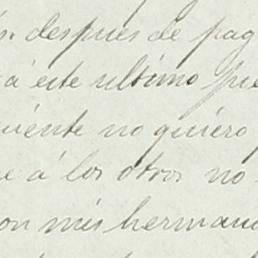 s. despues de pag
á este ultimo pre
uiente no quiero
e á los otros no
on mis herman